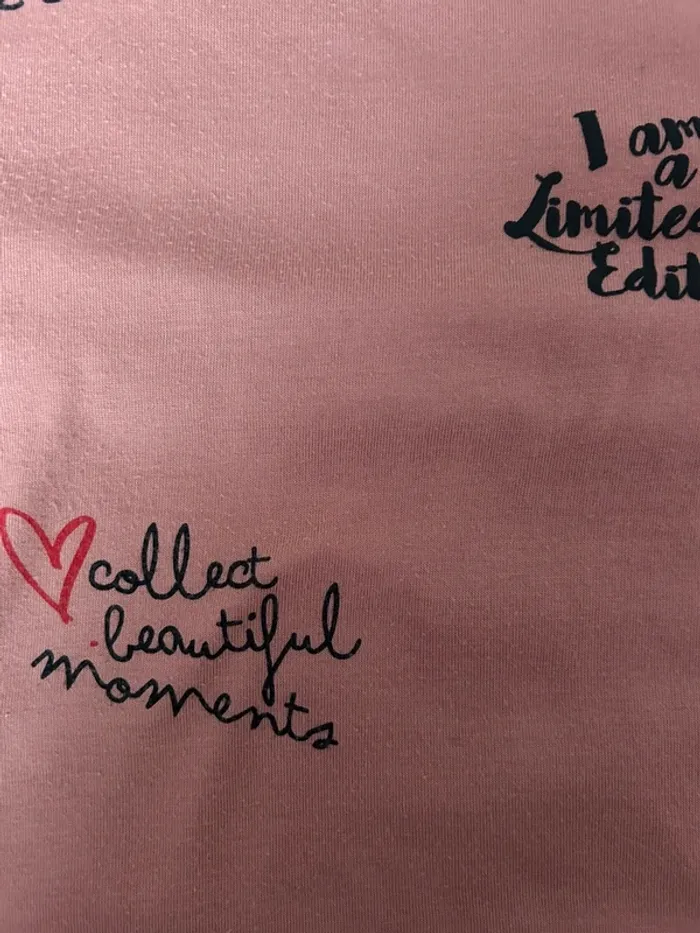 I am
a
Limited
Edit
collect
beautiful
moments